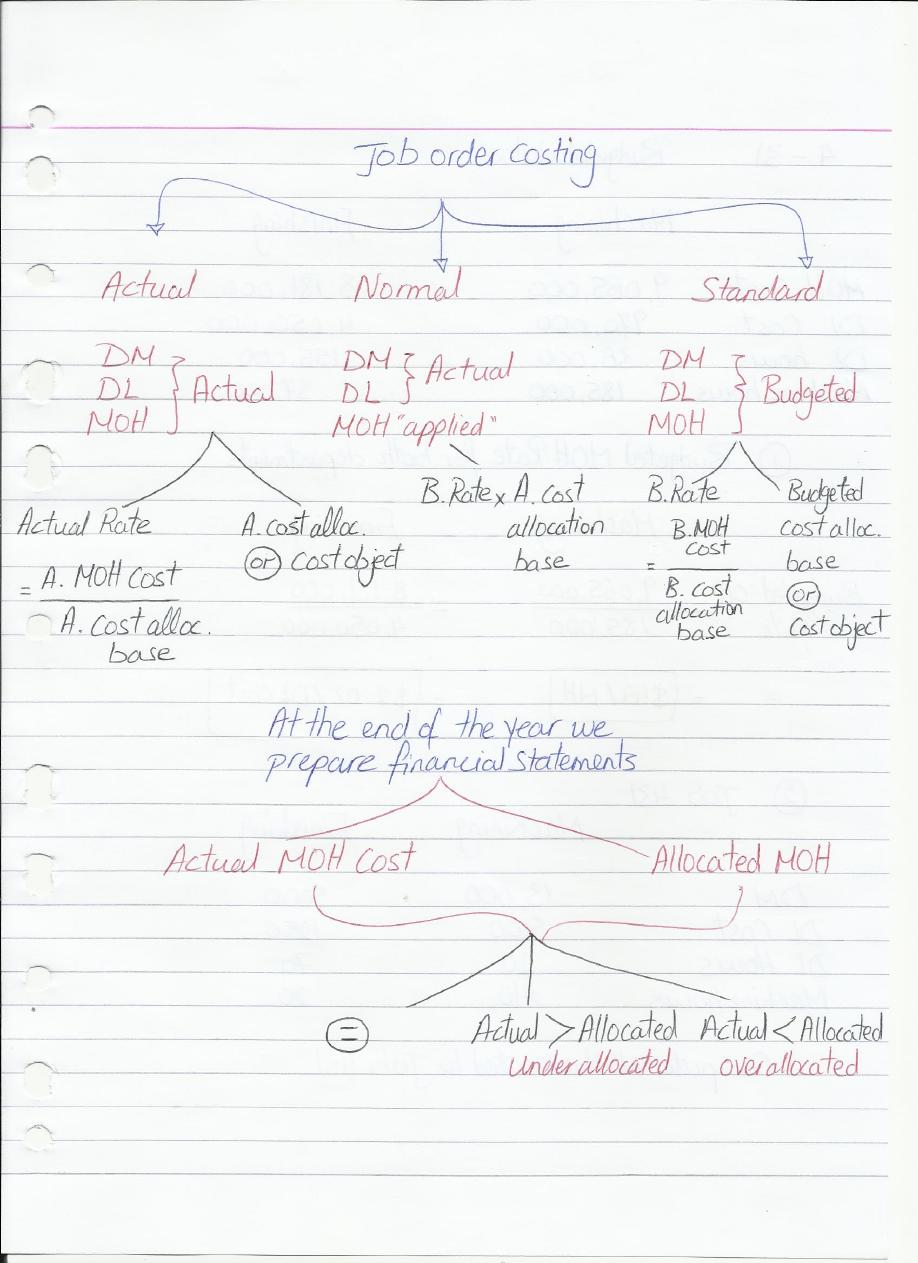 Job order Costing
Actual
Normal
Standard
DM
DL
MOH
Actual
DM
DL
Actual
MOH "applied"
DM
DL
MOH
Budgeted
Actual Rate
= A. MOH Cost
A. Cost alloc.
base
A. cost alloc.
or Cost object
B. Rate x A. Cost
allocation
base
B. Rate
= B. MOH
cost
B. cost
allocation
base
Budgeted
cost alloc.
base
or
Cost object
At the end of the year we
prepare financial statements
Actual MOH Cost
Allocated MOH
=
Actual > Allocated
Under allocated
Actual < Allocated
over allocated